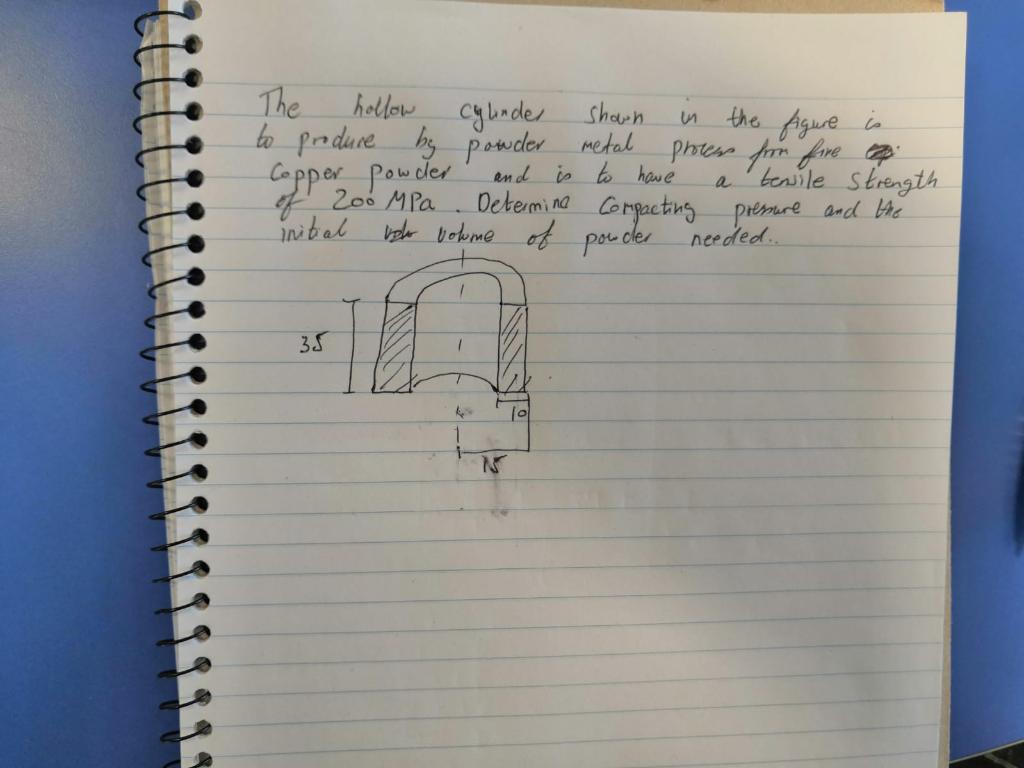 The hollow cylinder shown in the figure is
to produce by powder metal process from fine
Copper powder and is to have a tensile strength
of 200 MPa. Determine Compacting pressure and the
initial volume of powder needed..
35
10
15